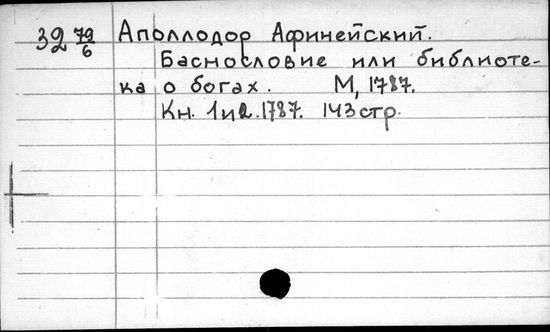 32 79/6 Аполлодор Афинейский.
Баснословие или библиоте-
ка о богах. М, 1787.
Кн. 1 и 2. 1787. 143 стр.